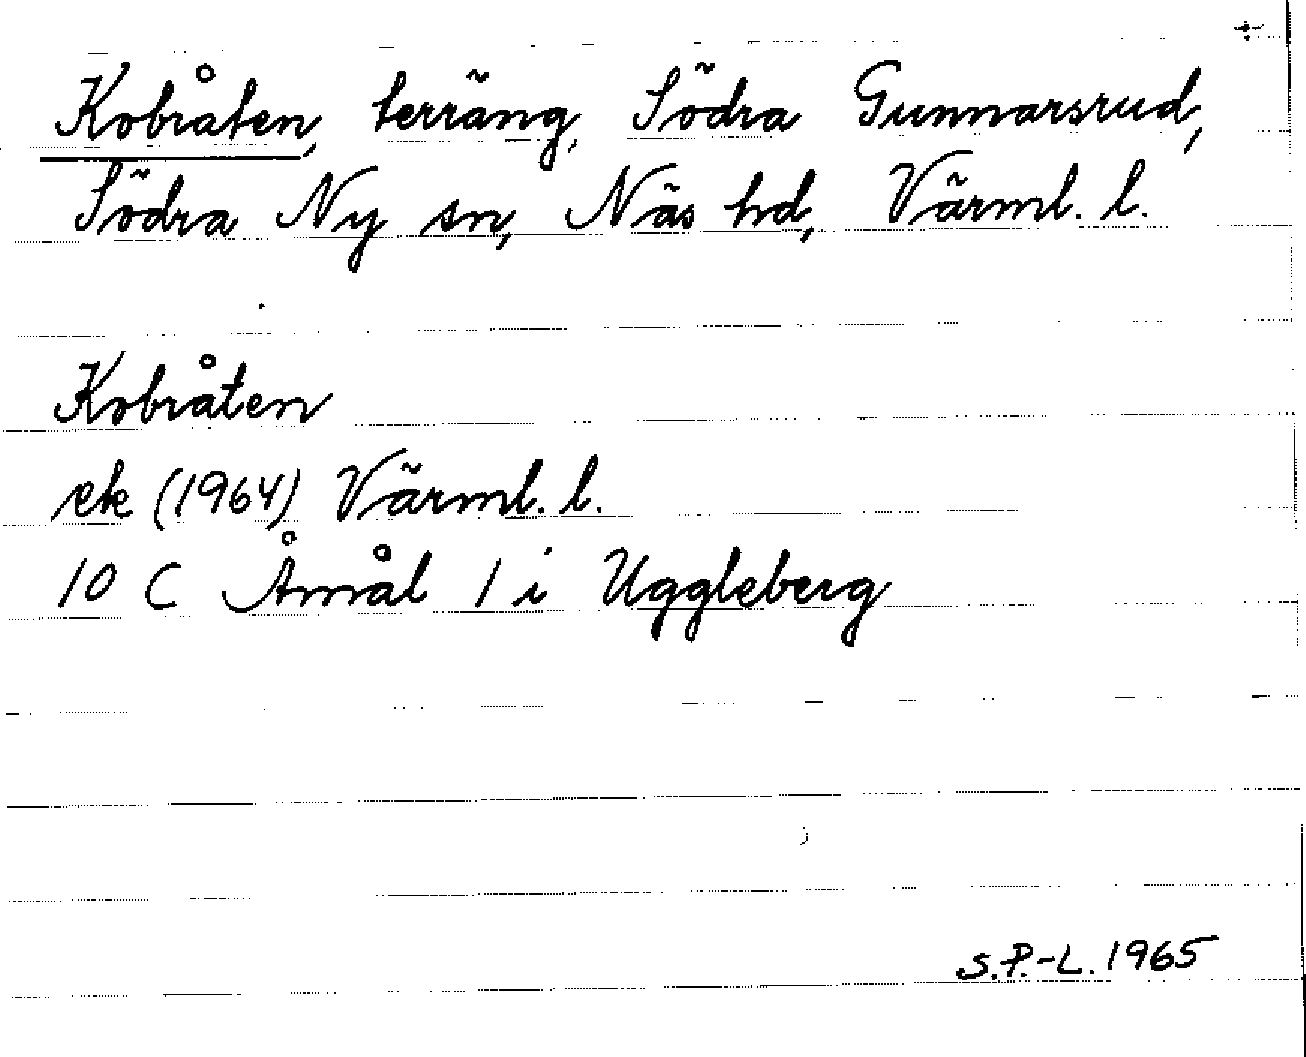 Kobråten, terräng, Södra Gunnarsrud,
Södra Ny sn, Näs hd, Värml. l.
Kobråten
ek (1964) Värml. l.
10 C Åmål 1 i Uggleberg
S.P.-L. 1965